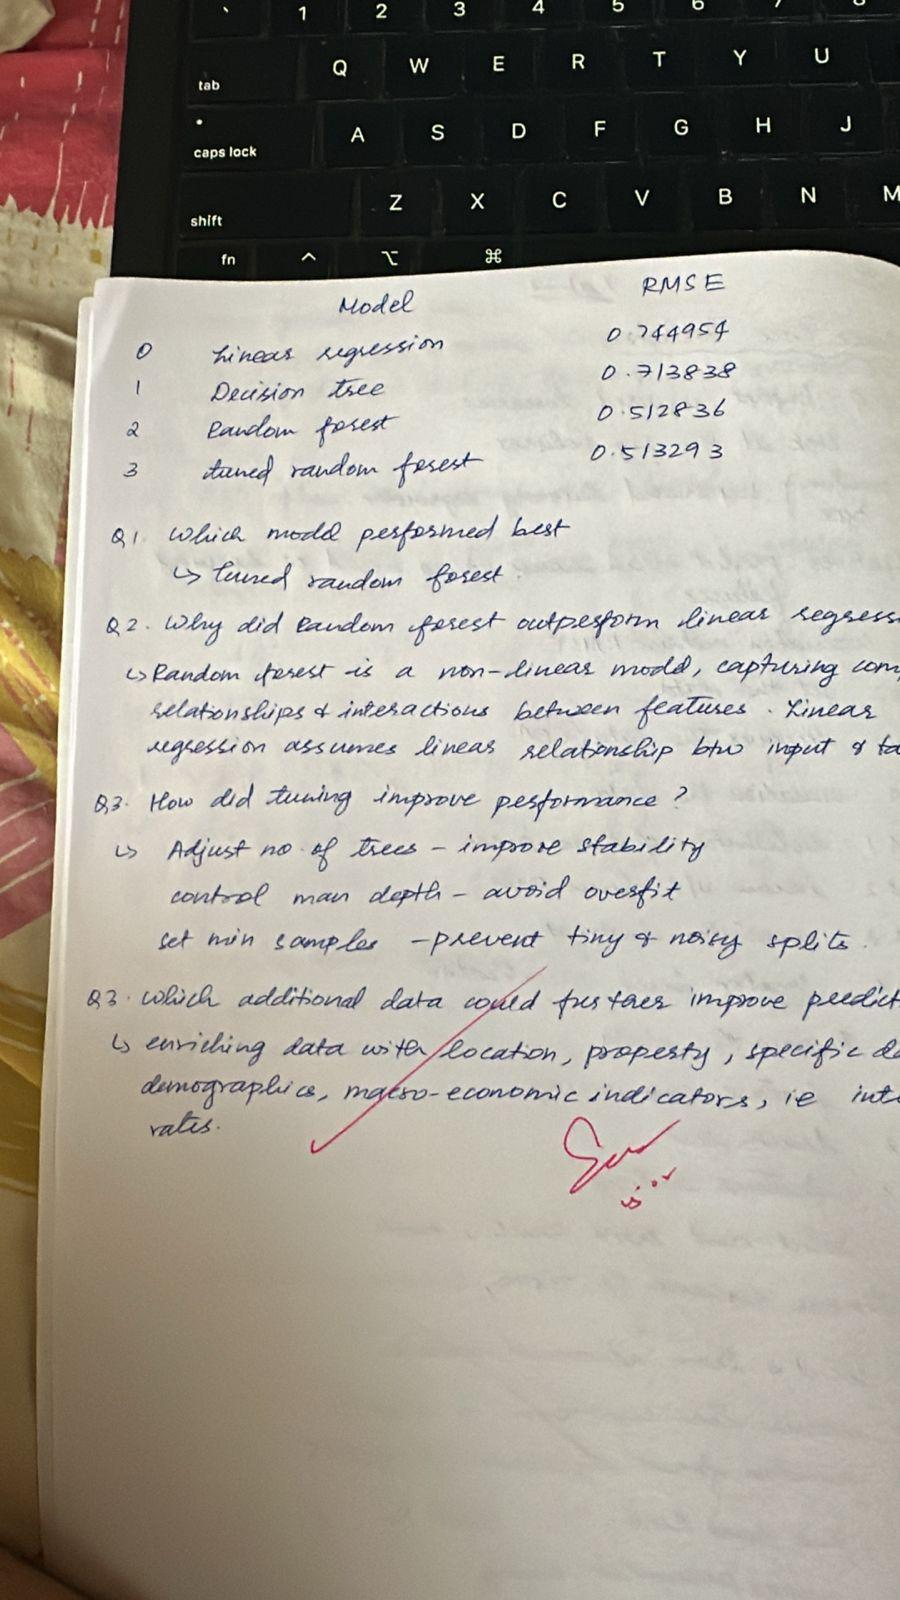 ` 1 2 3 4 5 6 7 8
tab Q W E R T Y U
caps lock A S D F G H J
shift Z X C V B N M
fn ^ ⌥ ⌘
Model RMSE
0 Linear regression 0.744954
1 Decision tree 0.713838
2 Random forest 0.512836
3 tuned random forest 0.513293
Q1. Which model performed best
↳ Tuned random forest.
Q2. Why did Random forest outperform linear regress
↳ Random forest is a non-linear model, capturing com
relationships & interactions between features. Linear
regression assumes linear relationship btw input & ta
Q3. How did tuning improve performance?
↳ Adjust no. of trees - improve stability
control man depth - avoid overfit
set min samples - prevent tiny & noisy splits.
Q3. Which additional data could further improve predict
↳ enriching data with location, property, specific de
demographics, macro-economic indicators, ie inte
rates.